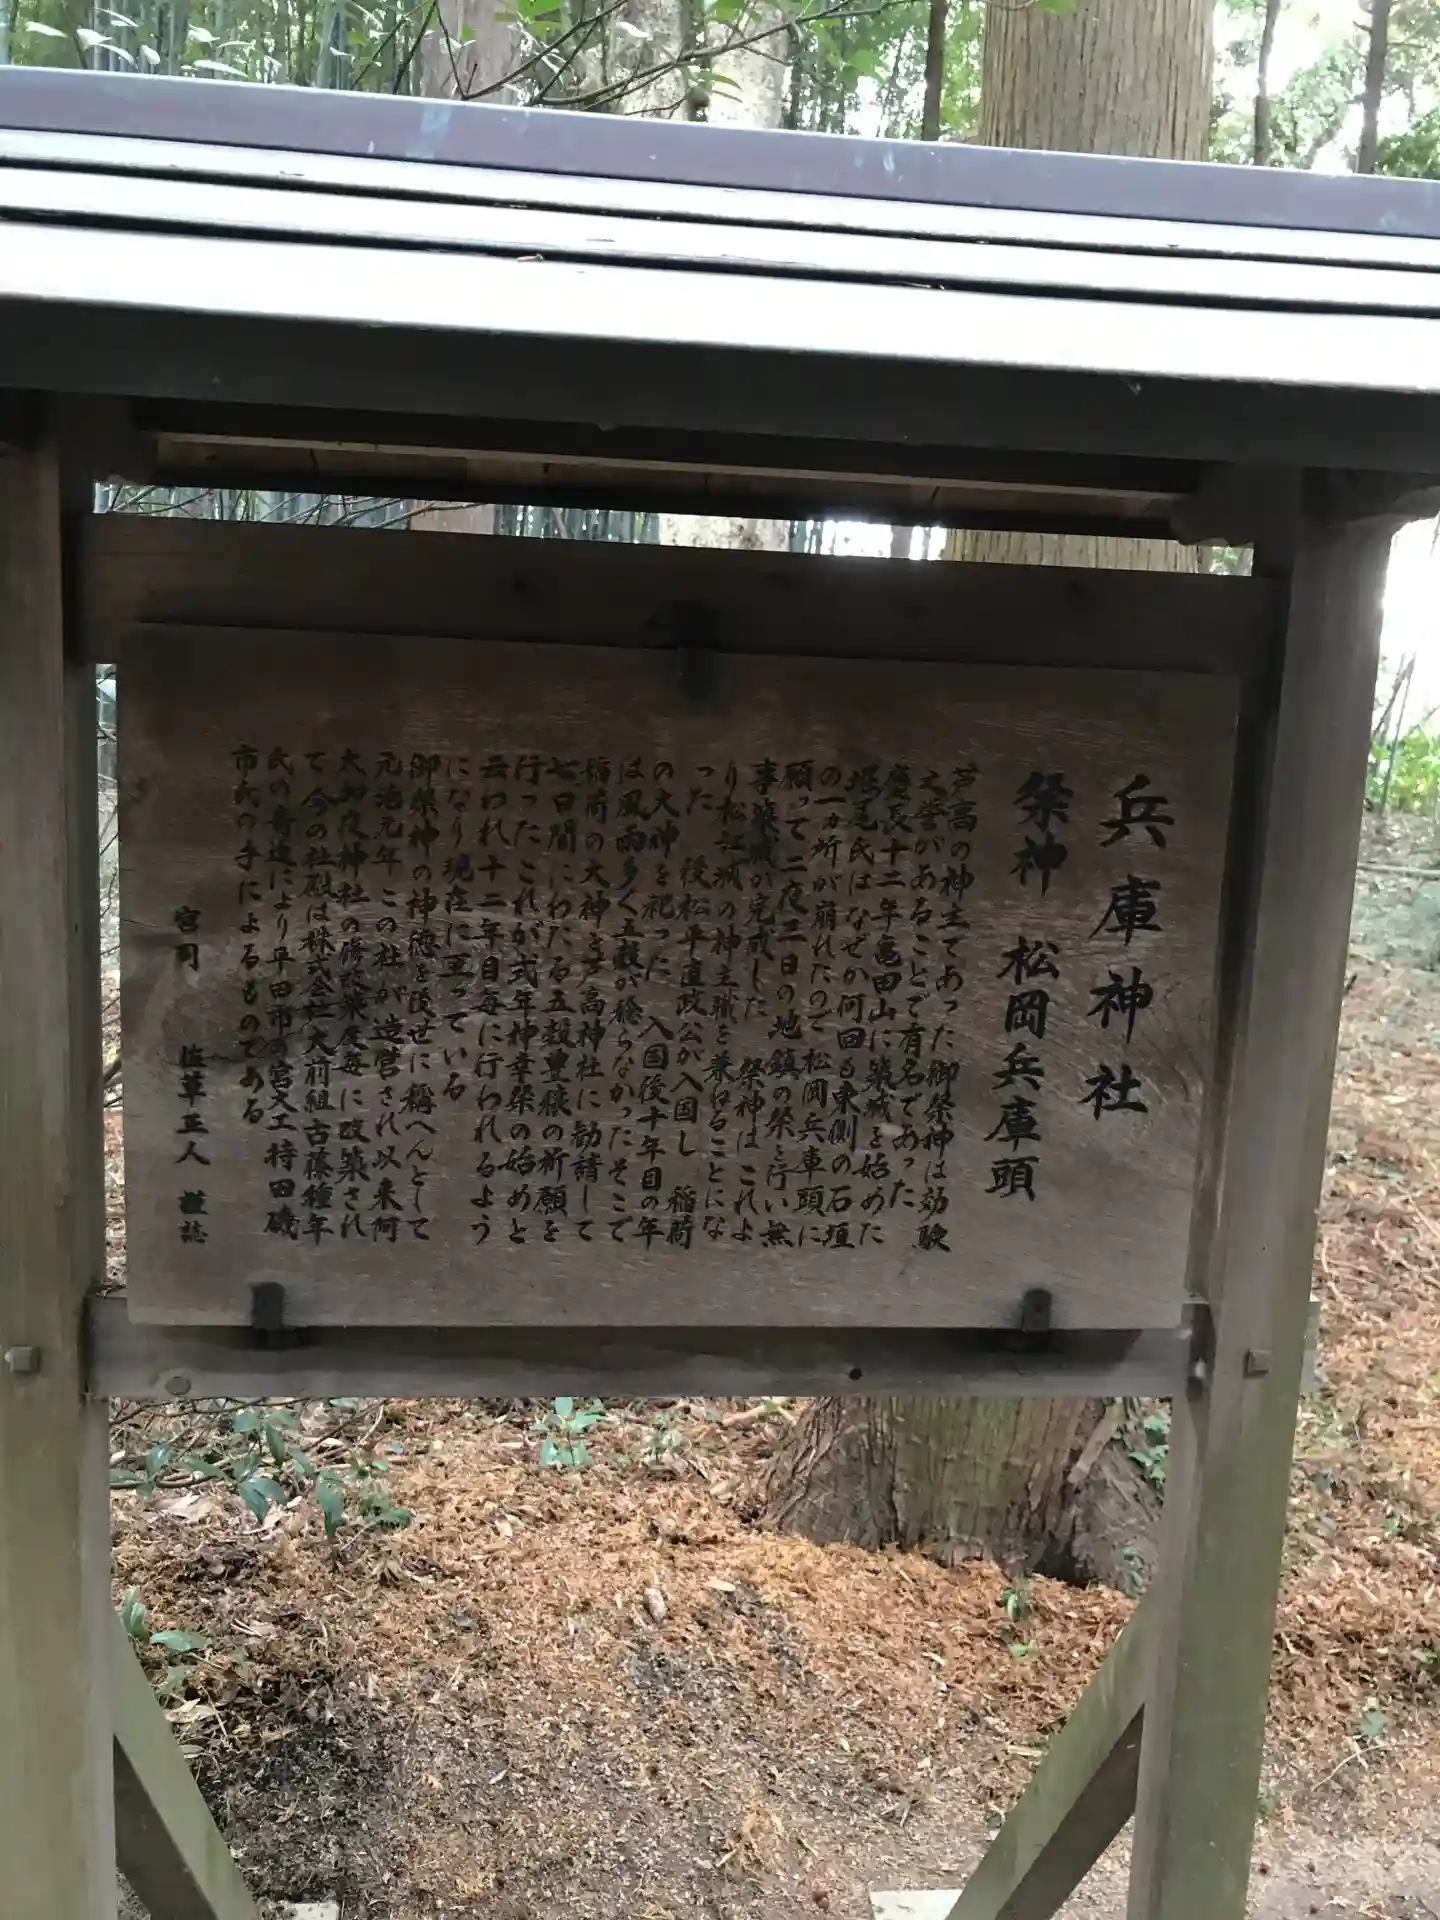 兵庫神社
祭神 松岡兵庫頭
芦高の神主であった御祭神は効験
文誉があることで有名であった
慶長十二年亀田山に築城を始めた
堀尾氏はなぜか何回も東側の石垣
の一ヵ所が崩れたので 松岡兵庫頭に
願って二夜三日の地鎮の祭を行い無
事築城が完成した 祭神はこれよ
り松江城の神主職を兼ねることにな
った 後松平直政公が入国し 稲荷
の大神を祀った 入国後十年目の年
は風雨多く五穀が稔らなかったそこで
稲荷の大神を芦高神社に勧請して
七日間にわたる五穀豊穣の祈願を
行ったこれが式年神幸祭の始めと
云われ十二年目毎に行われるよう
になり現在に至っている
御祭神の神徳を後世に稱へんとして
元治元年 この社が造営され以来阿
太加夜神社の修改築度毎に改築され
て今の社殿は株式会社大前組古藤種年
氏の寄進により平田市の宮大工持田磯
市氏の手によるものである
宮司 佐草正人 謹誌